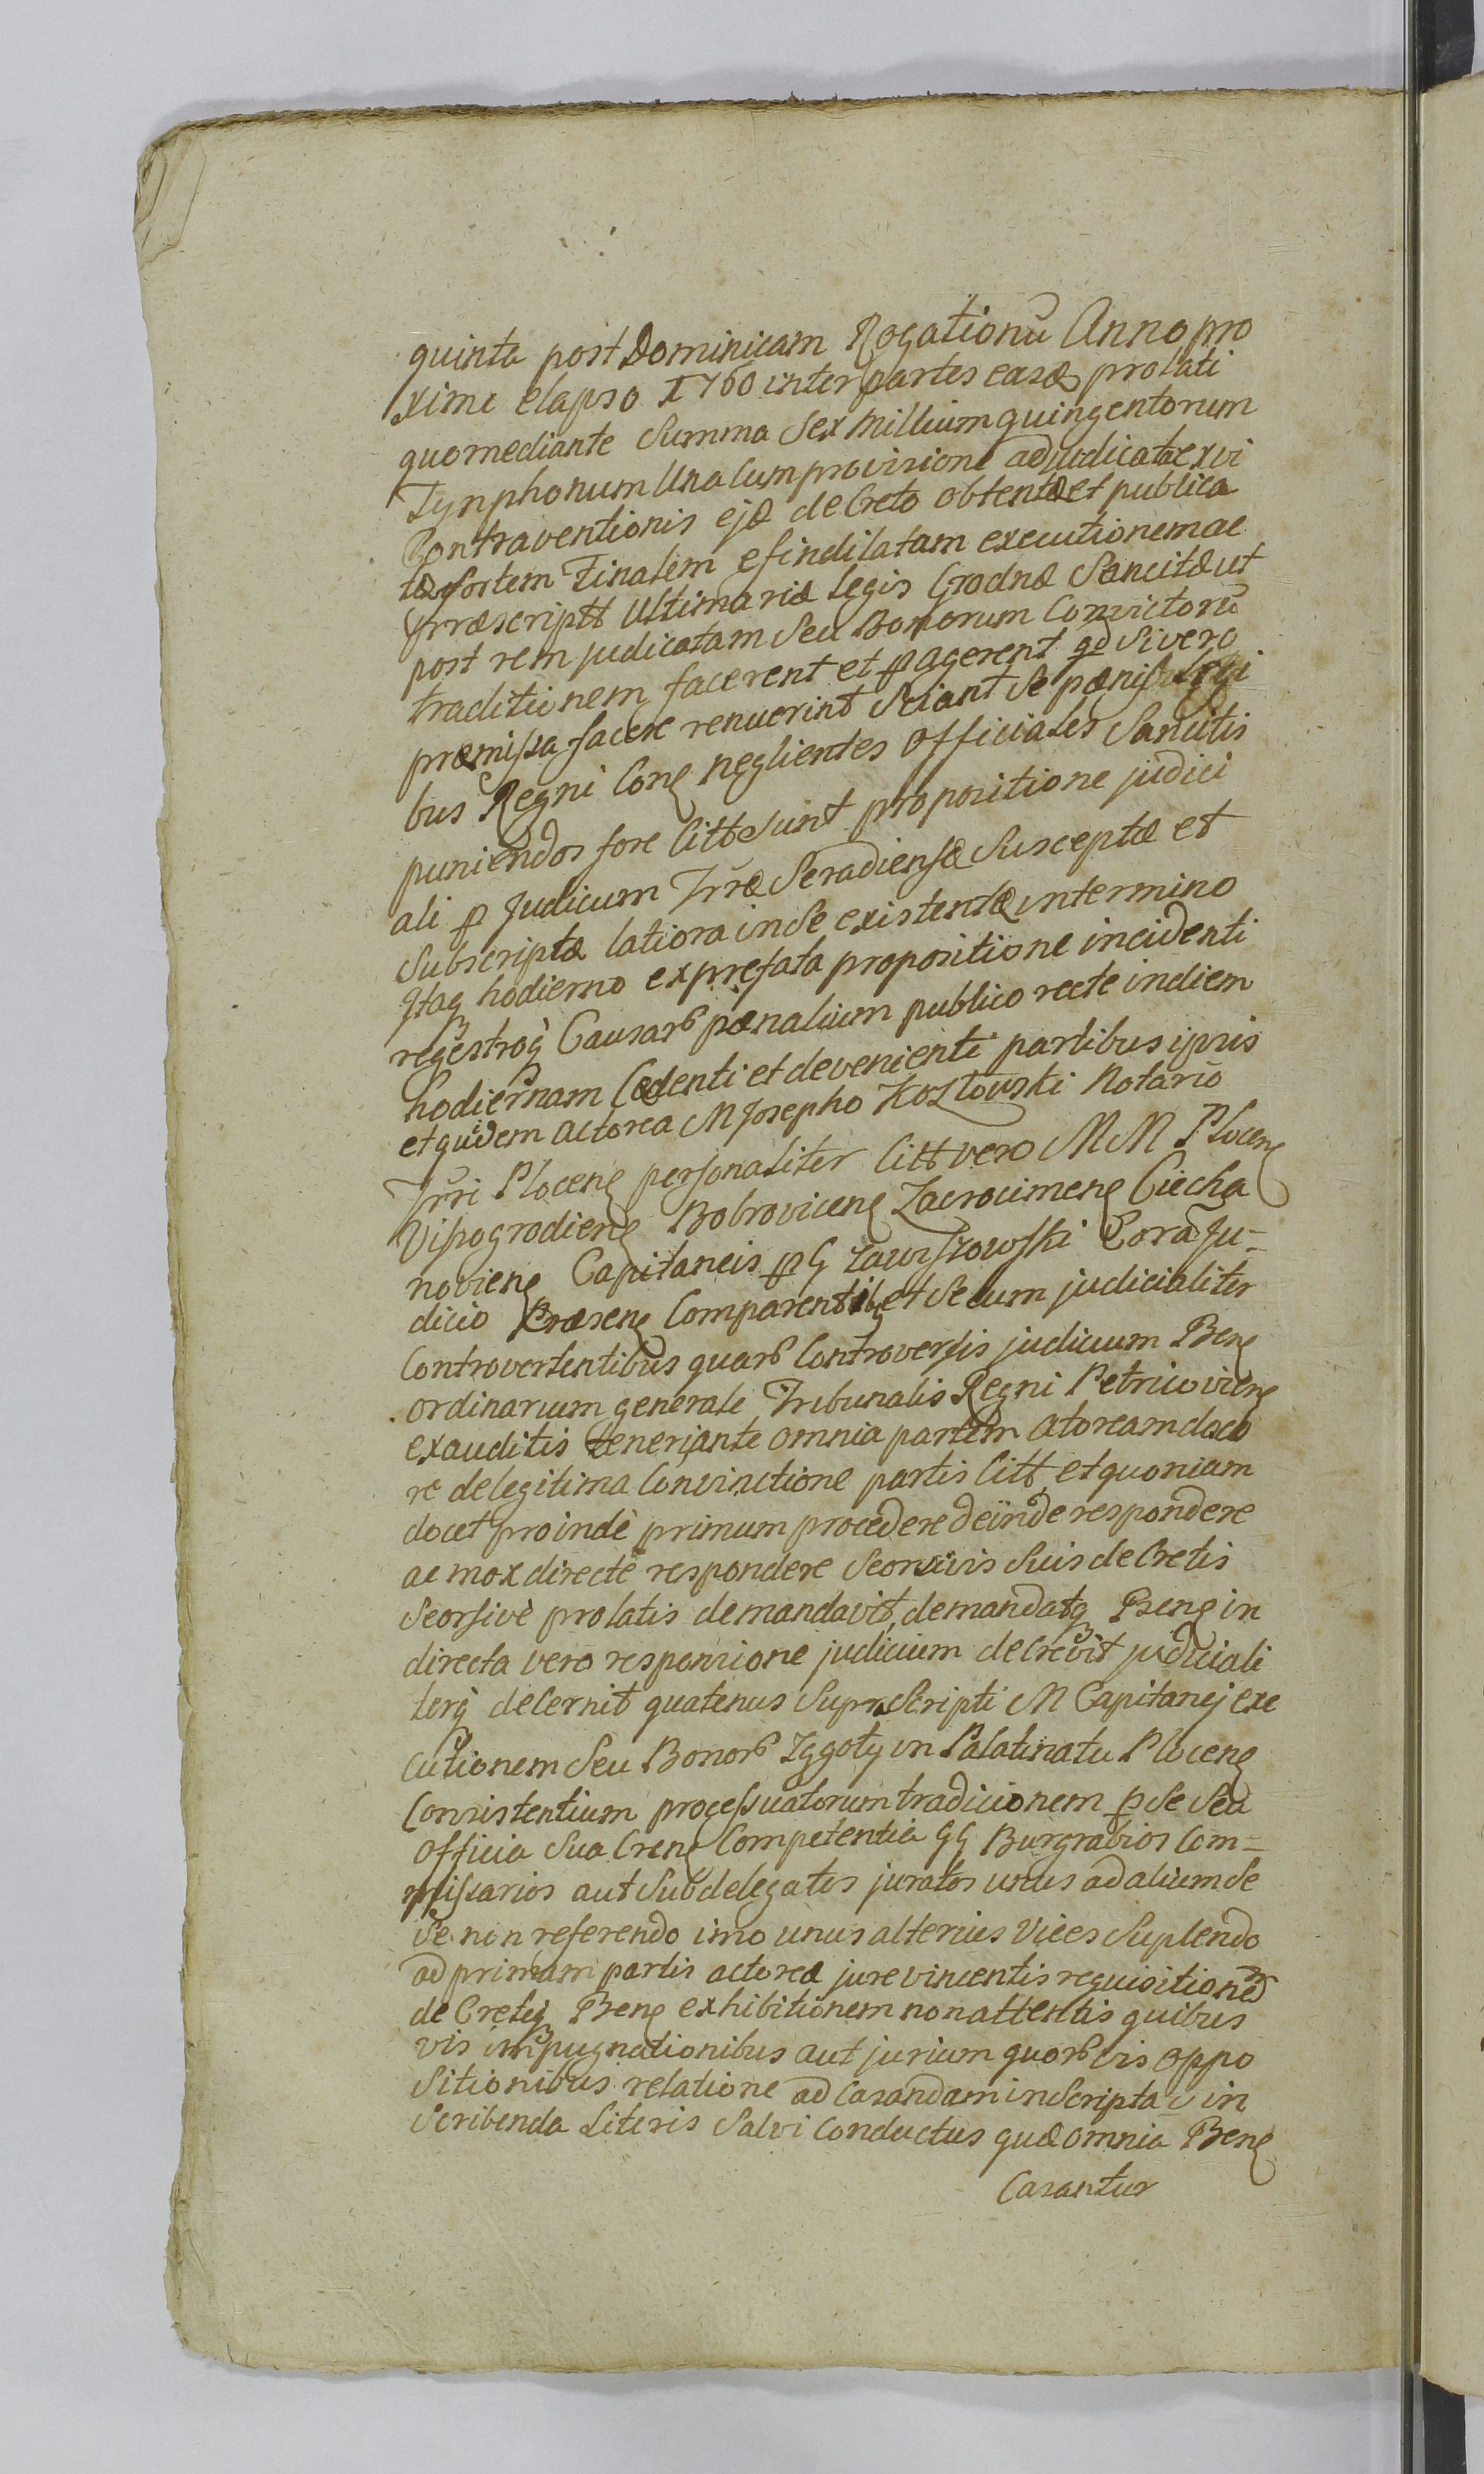 quinta post Dominicam Rogationū Anno pro
xime elapso 1760 inter partes easdē prolati
quo mediante Summa Sex Millium quingentorum
Tynphonum Una Cum provisione adjudicatæ ex vi
Contraventionis ejd deCreto obtentæ et publica
tæ fortem Finalem efindilatam executionem ac
Præscriptt Ultimariæ legis Grodnæ Sancitæ ut
post rem judicatam Seu Bonorum Convictorū
traditionem facerent et ꝑagerent qd Si vero
præmissa facere renuerint Sciant Se pænis Legi
bus Regni Conę neglientes Officiales Sancitis
puniendos fore Citt Sunt propositione judici
ali ꝑ Judicum Trræ Seradiensę Susceptæ et
Subscriptæ latiora in Se existente in termino
Itaq hodierno ex prefata propositione incidenti
regestroq Causarꝫ pænalium publico recte in diem
hodiernam Cadenti et devenienti partibus ipsis
et quidem Actorea M Josepho Kozłowski Notario
Trri Plocenę personaliter Citt vero MM Plocenę
Visogrodienę Bobrovicenę Zacrocimenę Ciecha
novienę Capitaneis ꝑ G Zawiszowski Corā Ju-
dicio Præsenę Comparentibꝫ et Secum judicialiter
Controvertentibus quarꝫ Controversis judicium Præsenę
ordinarium generale Tribunalis Regni Petricovienę
exauditis teneri ante omnia partem Atoream doce
re de legitima Convinctione partis Citt, et quoniam
docet proindè primum procedere deinde respondere
ac mox directè respondere Seorsivis Suis deCretis
Seorsivè prolatis demandavit, demandatq Præsenę in
directa vero responsione judicium deCrevit judiciali
terq deCernit quatenus SupraScripti M Capitanej exe
cutionem Seu Bonorꝫ Zggoły in Palatinatu Plocenę
Consistentium processuatorum tradicionem ꝑ Se Seu
Officia Sua Crenę Competentia GG Burgrabios Com=
missarios aut Subdelegatos juratos unus ad alium Se
Se non referendo imo unus alterius Vices Suplendo
ad primam partis actoreæ jure vincentis requisitionē
deCretiq Præsenę exhibitionem non attentis quibus
vis impugnationibus aut jurium quorꝫvis oppo
Sitionibus relatione ad Casandam inscripta v in
Scribenda Literis Salvi Conductus quæ omnia Præsenę
Casantur